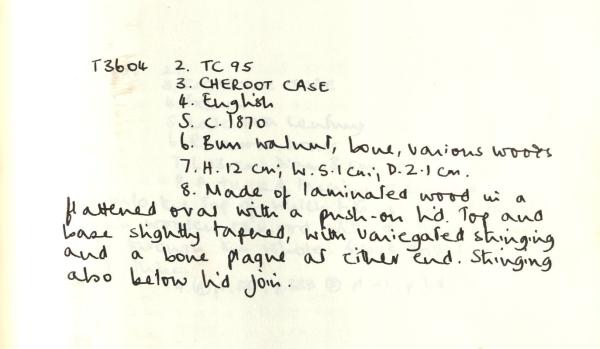 T3604 2. TC 95
3. CHEROOT CASE
4. English
5. C. 1870
6. Burr walnut, bone, various woods
7. H. 12 cm; W. 5.1 cm; D. 2.1 cm.
8. Made of laminated wood in a
flattened oval with a push-on lid. Top and
base slightly tapered, with variegated stringing
and a bone plaque at either end. Stringing
also below lid join.